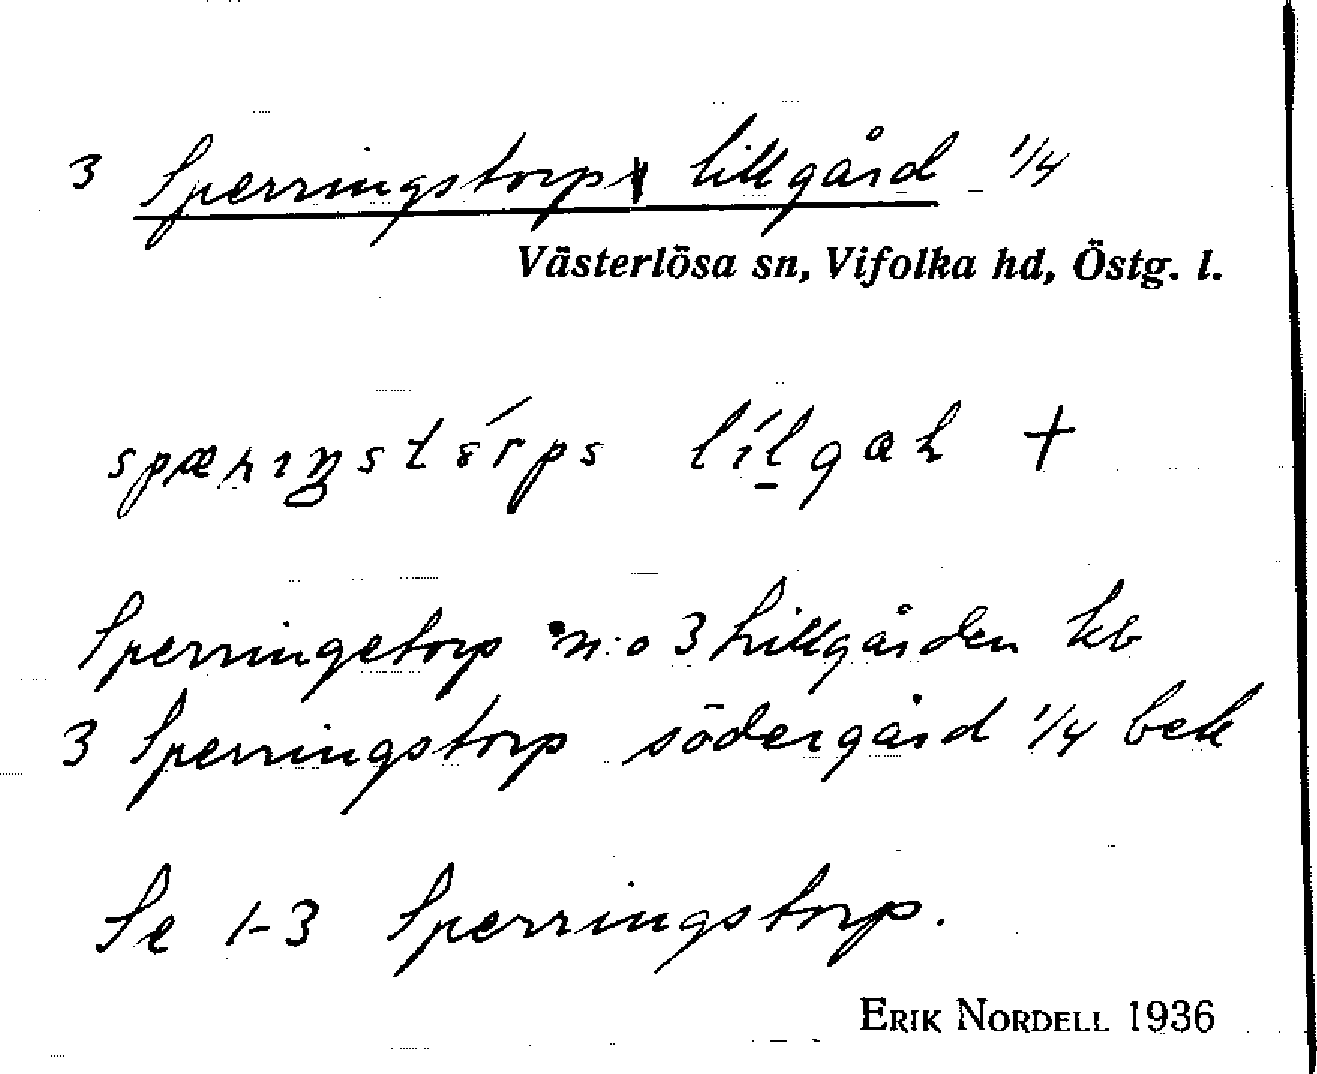 3 Sperringstorp lillgård 1/4
Västerlösa sn, Vifolka hd, Östg. l.
lílgah +
Sperringetorp n:o 3 Lillgården kb
3 Sperringstorp södergård 1/4 bek
Se 1-3 Sperringstorp.
ERIK NORDELL 1936